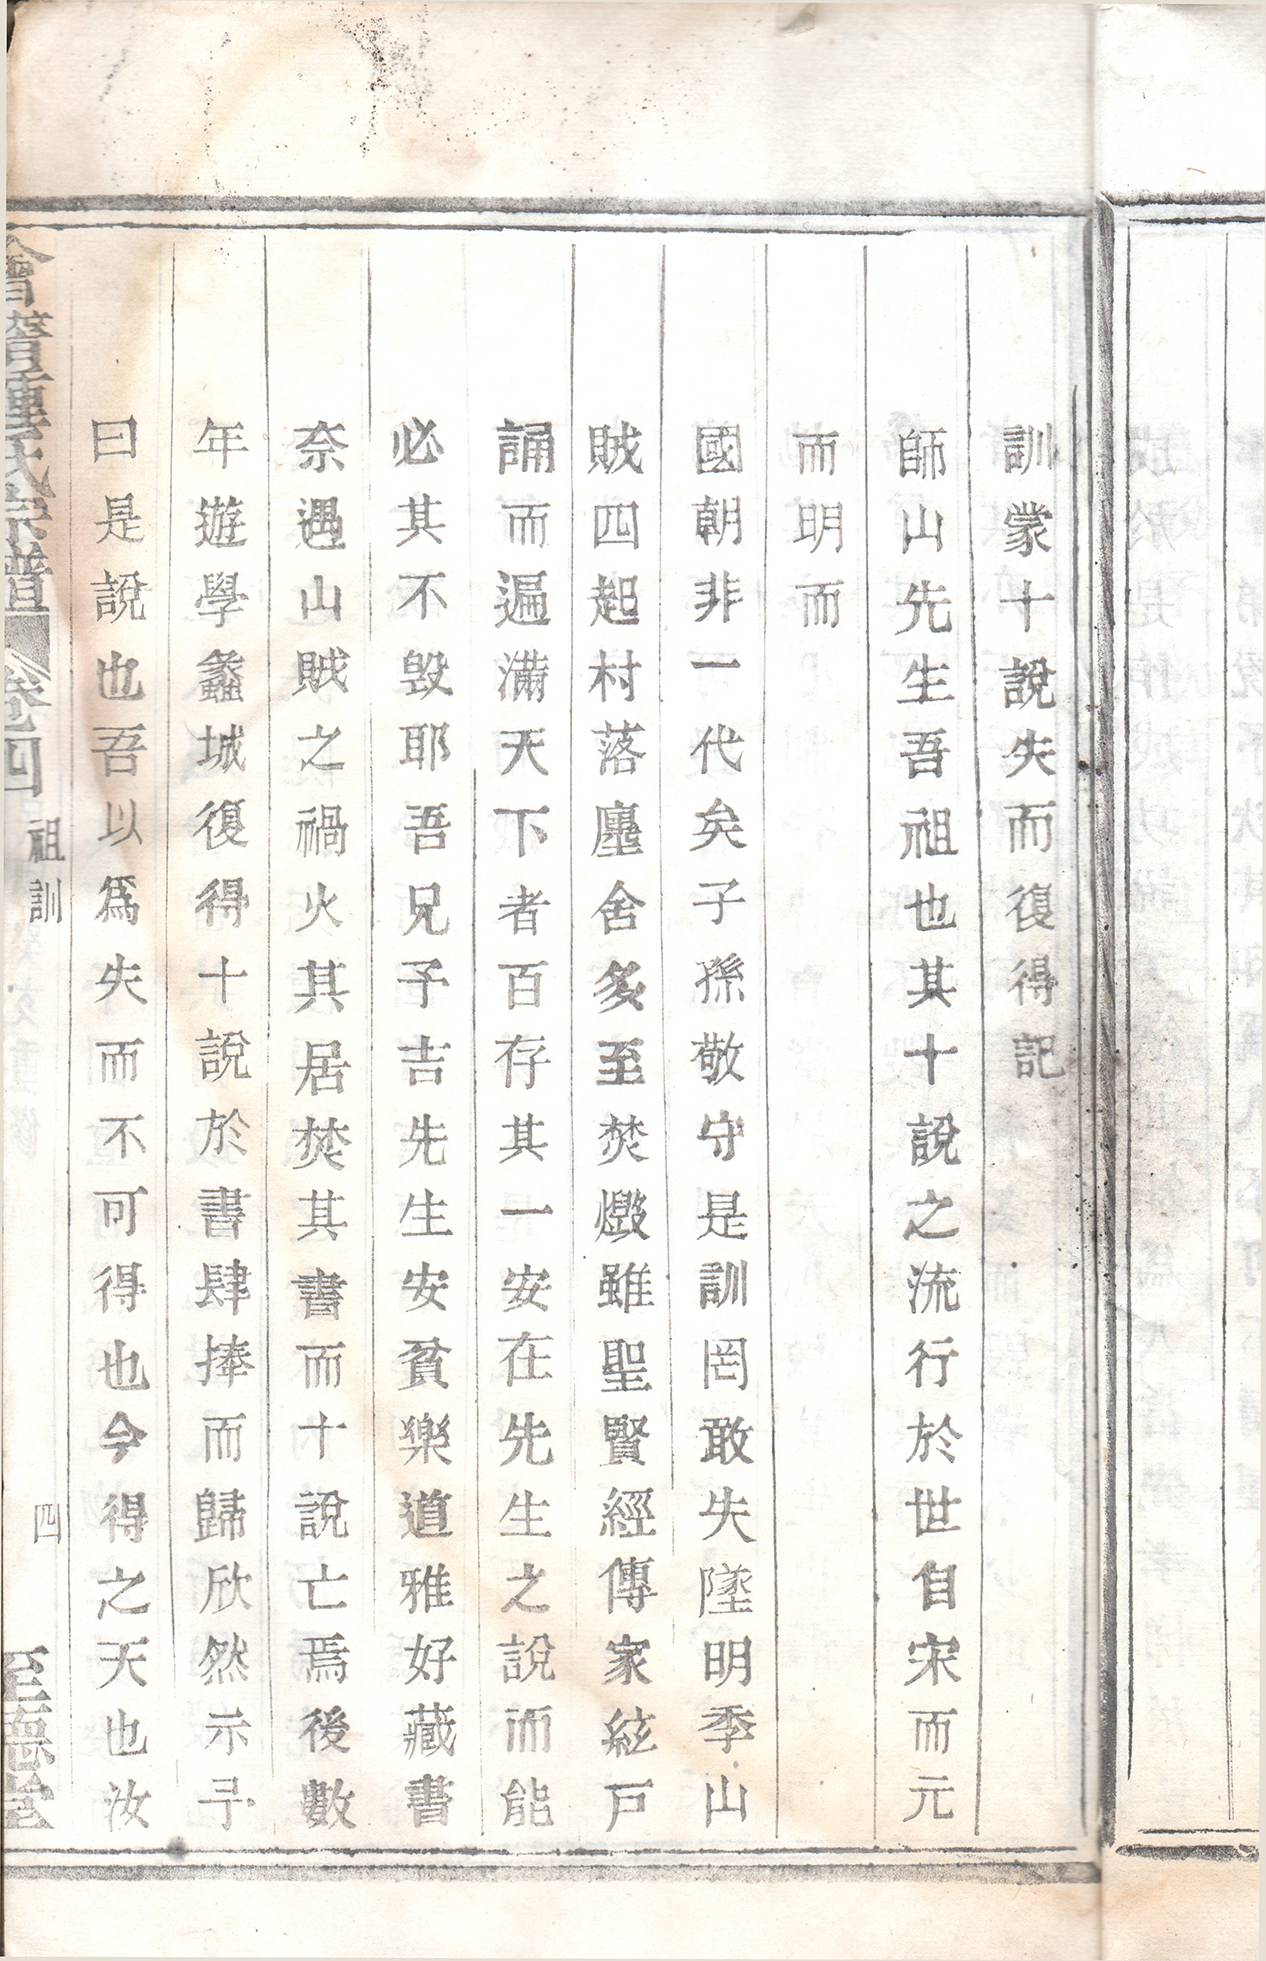 訓蒙十說失而復得記
師山先生吾祖也其十說之流行於世自宋而元
而明而
國朝非一代矣子孫敬守是訓罔敢失墜明季山
賊四起村落廛舍多至焚燬雖聖賢經傳家絃戶
誦而遍滿天下者百存其一安在先生之說而能
必其不毀耶吾兄予吉先生安貧樂道雅好藏書
奈遇山賊之禍火其居焚其書而十說亡焉後數
年遊學蠡城復得十說於書肆捧而歸欣然示予
曰是說也吾以爲失而不可得也今得之天也汝
會稽 氏宗譜 卷四 祖訓 四 至德堂